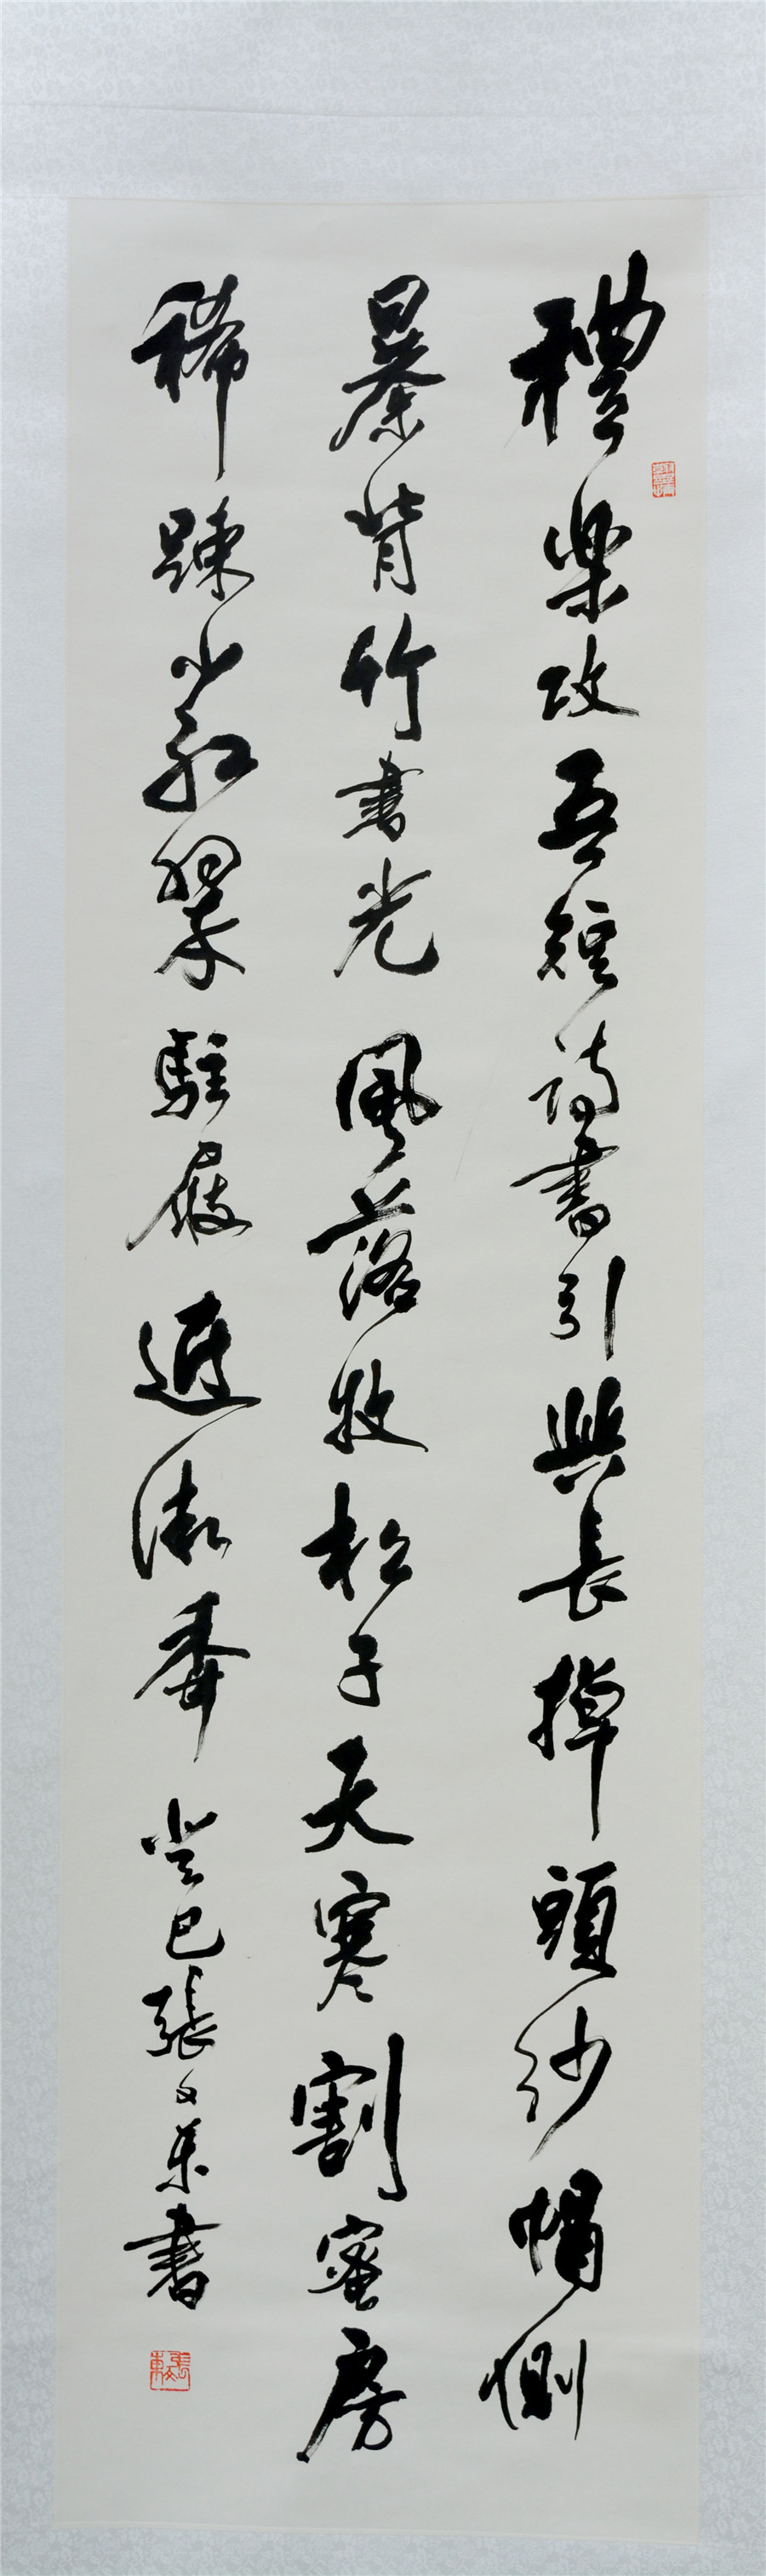 禮樂攻吾短詩書引興長掉頭紗帽側
曝背竹書光風落收松子天寒割蜜房
稀疎小紅翠駐屐近微香癸巳張文東書